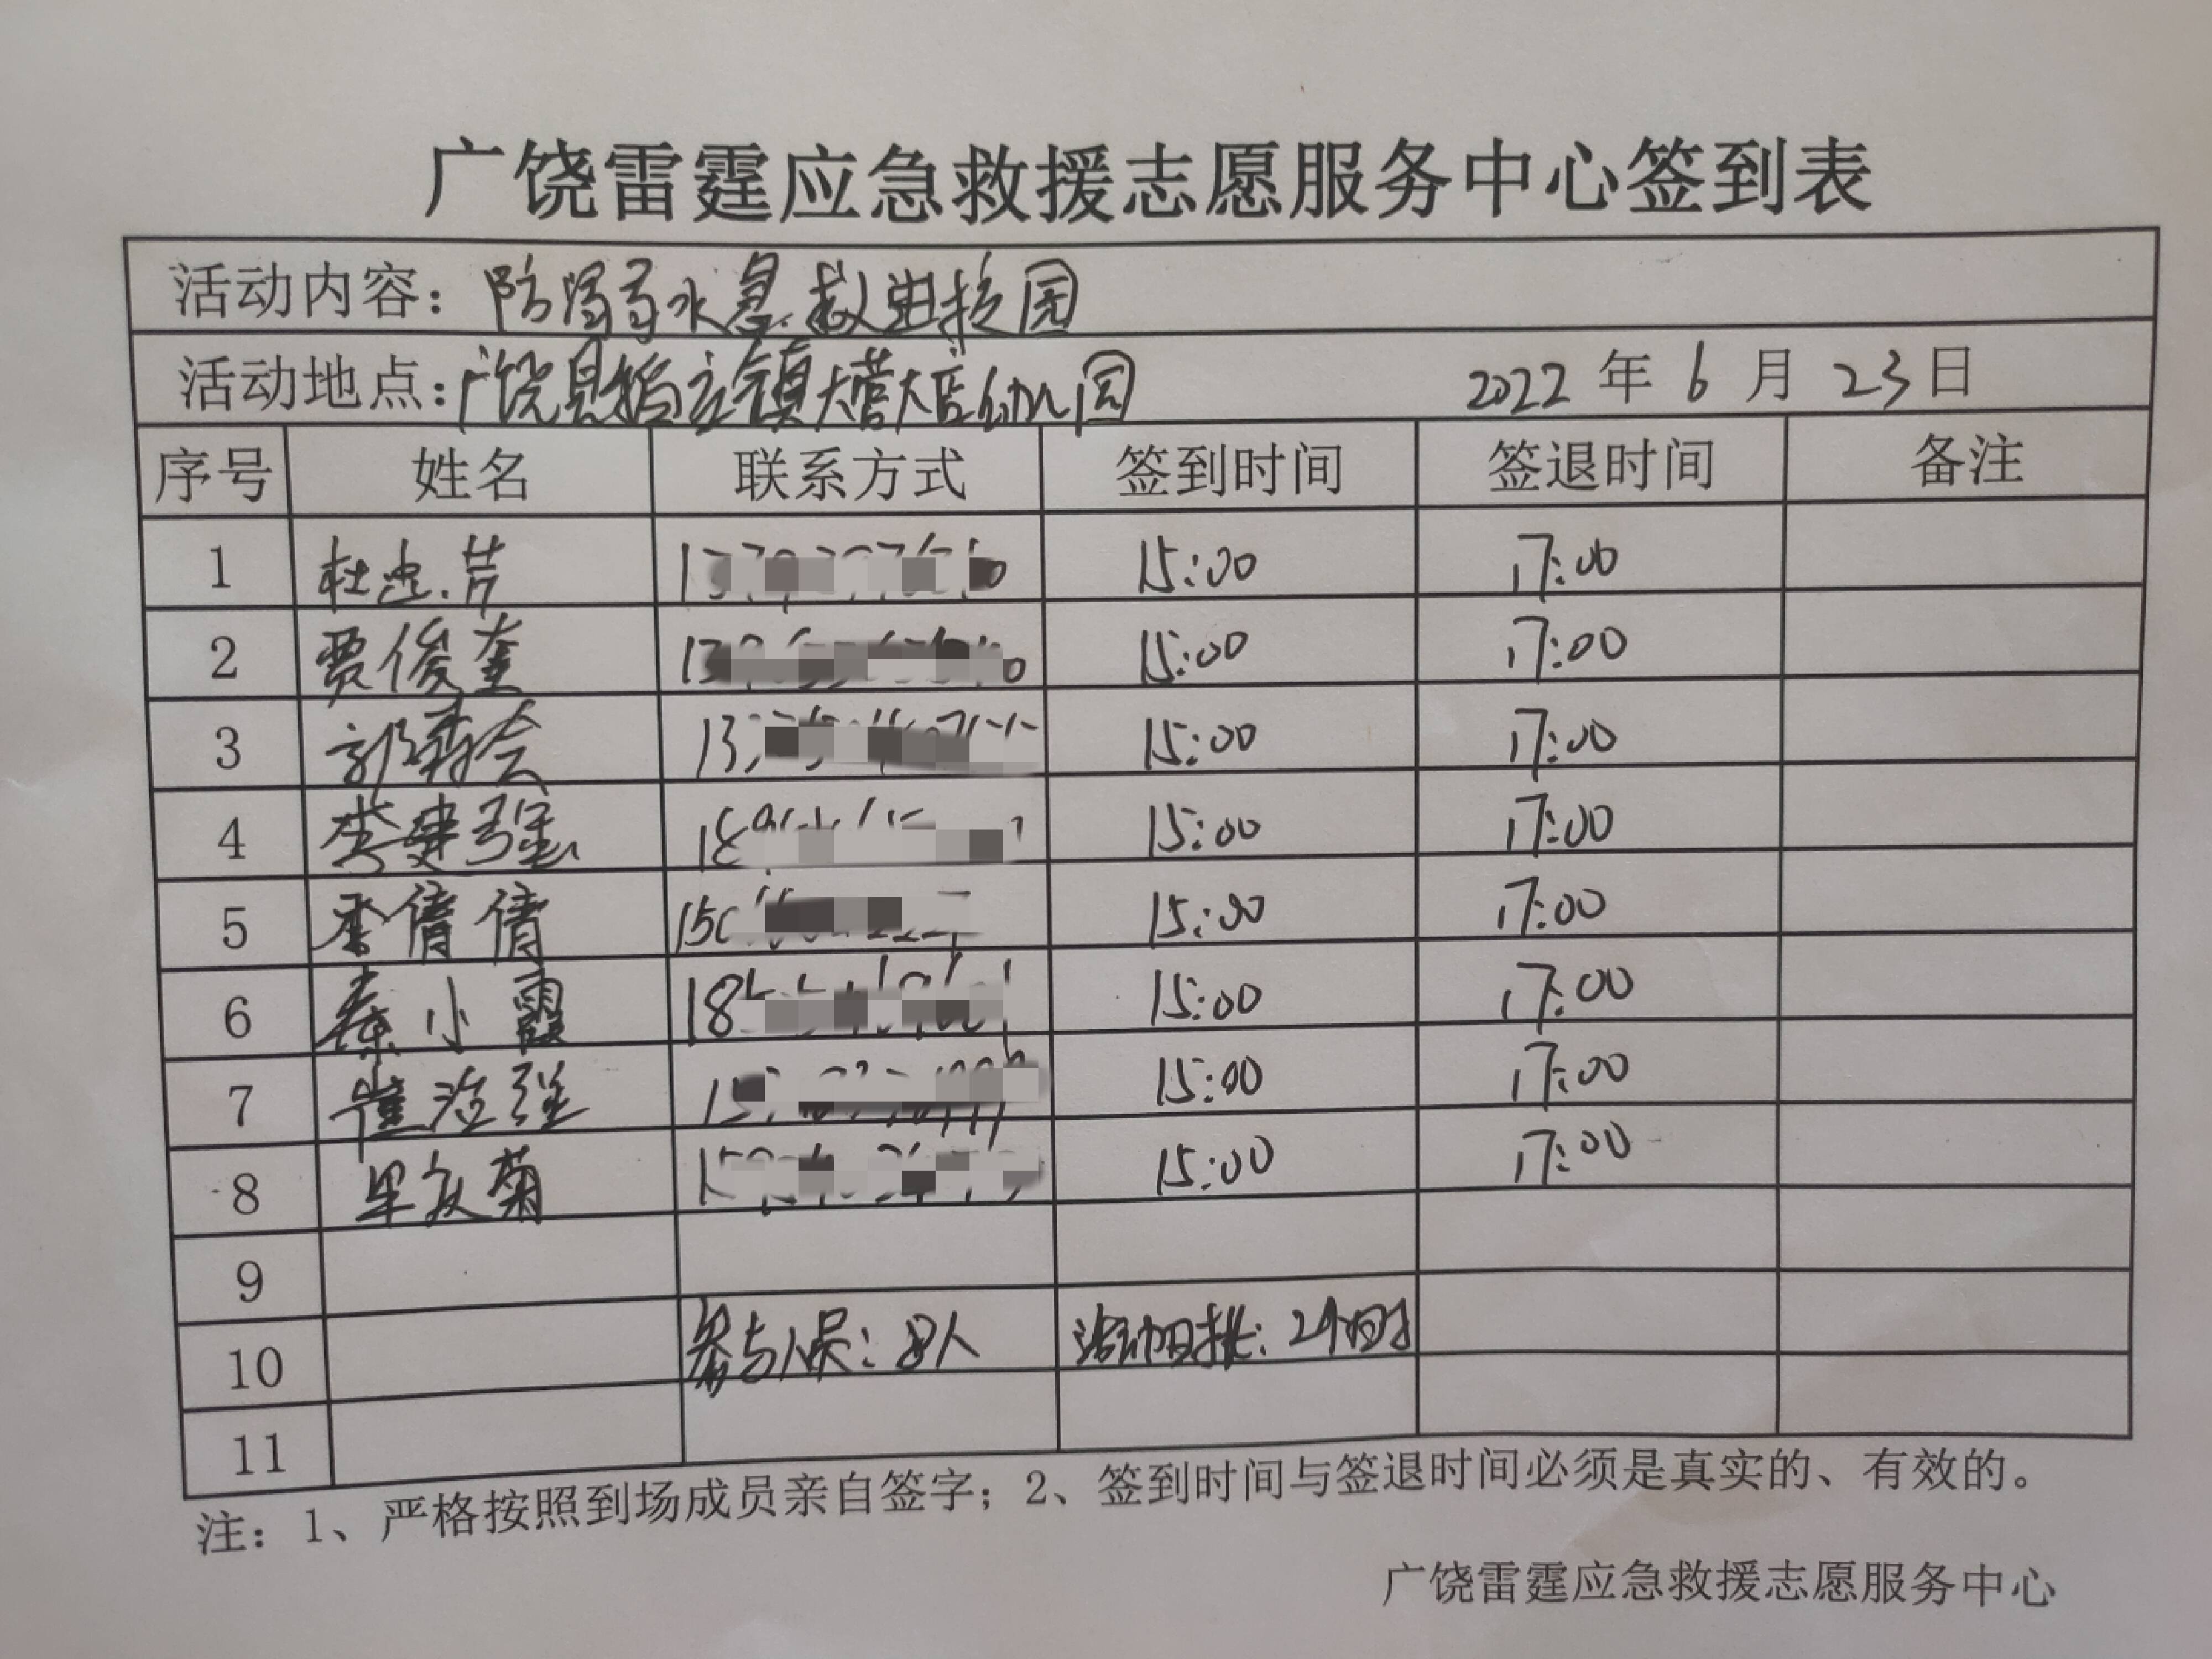 广饶雷霆应急救援志愿服务中心签到表
活动内容：防溺水急救进校园
活动地点：广饶县稻庄镇大营大店幼儿园 2022年6月23日
序号 姓名 联系方式 签到时间 签退时间 备注
1 杜忠芹 15:00 17:00
2 贾俊奎 15:00 17:00
3 郭寿会 15:00 17:00
4 李建强 15:00 17:00
5 李倩倩 15:00 17:00
6 秦小霞 15:00 17:00
7 崔洪强 15:00 17:00
8 菊 15:00 17:00
9
10 参与人员：8人 活动时长：2小时
11
注：1、严格按照到场成员亲自签字；2、签到时间与签退时间必须是真实的、有效的。
广饶雷霆应急救援志愿服务中心